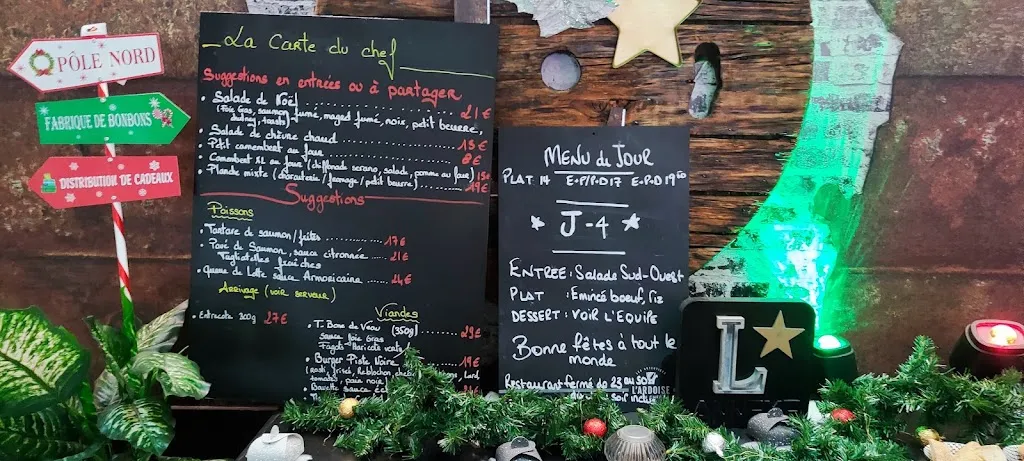 PÔLE NORD
FABRIQUE DE BONBONS
DISTRIBUTION DE CADEAUX
La Carte du chef
Suggestions en entrées ou à partager
• Salade de Noël 21 €
fumé, magret fumé, noix, petit beurre,
• Salade de chèvre chaud 15 €
• Petit camembert au four 8 €
• Camembert XL au four (chiffonade serano, salade, pomme au four) 15€
• Planche mixte (charcuterie / fromage / petit beurre) 19€
Suggestions
Poissons
Tartare de saumon / frites 17€
• Pavé de Saumon, sauce citronnée 21€
Tagliatelles fraîches
• Queue de Lotte sauce Armoricaine 24€
Arrivage (voir serveur)
Viandes
• Entrecote 300g 27€
• T. Bone de Veau (350g) 29€
sauce foie Gras
Fagots Haricots verts
• Burger Piste Noire 19€
MENU du JOUR
PLAT 14 E.P/P.D 17 E.P.D 19 50
J-4
ENTREE : Salade Sud-Ouest
PLAT : Emincé boeuf, riz
DESSERT : VOIR L'EQUIPE
Bonne fêtes à tout le
monde
Restaurant fermé du 23 au soir
L'ARDOISE
L